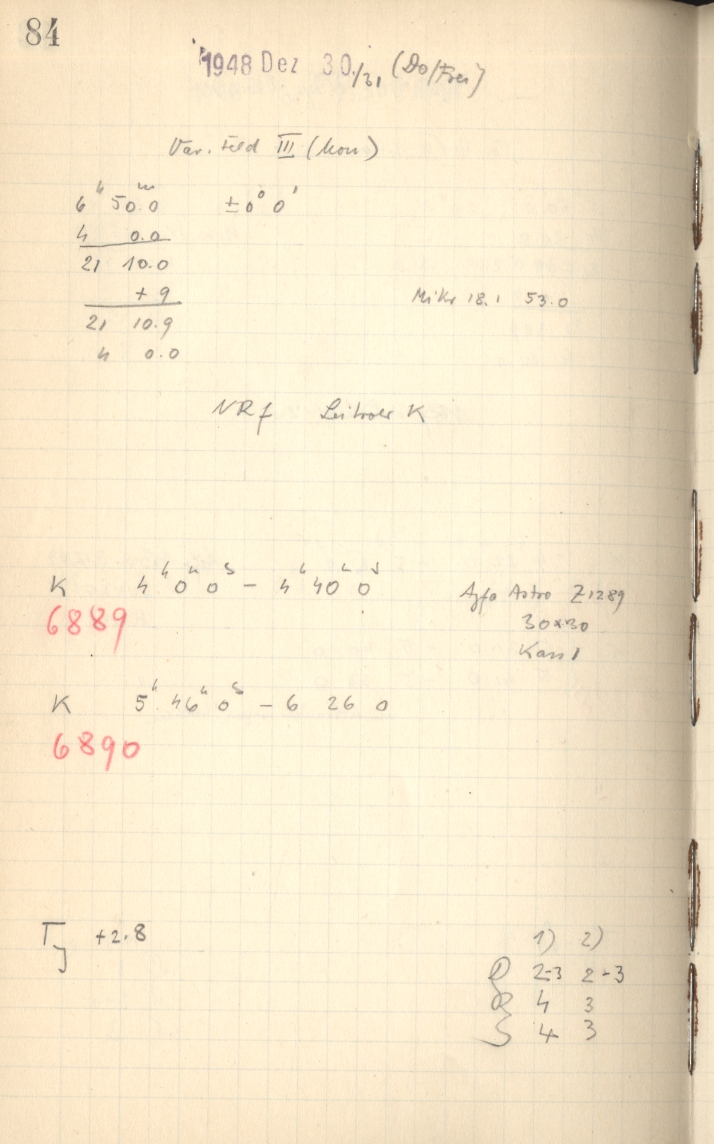 84
1948 Dez 30./31. (Do/Frei)
Var. Feld III (Mon)
6ʰ 50.0ᵐ ±0° 0'
4 0.0
21 10.0
+ 9
Mikr 18.1 53.0
21 10.9
4 0.0
NRf Leitrohr K
K 4ʰ 0ᵐ 0ˢ – 4ʰ 40ᵐ 0ˢ
6889
Agfa Astro Z1289
30x30
Kass 1
K 5ʰ 46ᵐ 0ˢ – 6 26 0
6890
T +2.8
1) 2)
2-3 2-3
4 3
4 3